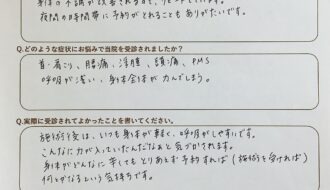 身体の不調が改善されるので、リピートしています。
夜間の時間帯に予約がとれることもありがたいです。
Q.どのような症状にお悩みで当院を受診されましたか？
首・肩こり、腰痛、浮腫、頭痛、PMS
呼吸が浅い、身体全体が力んでしまう。
Q.実際に受診されてよかったことを書いてください。
施術後は、いつも身体が軽く、呼吸がしやすいです。
こんなに力が入っていたんだなぁと気づかされます。
身体がどんなに辛くてもとりあえず予約すれば(施術を受ければ)
何とかなるという気持ちです。